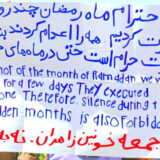 احترام ماه رمضان چند روز
کردیم همه را اعدام کردند
است حرام است حتی در ماه‌های
not of the month of Ramadan we w
for a few days They executed
one Therefore, silence during
dden months is also forbidden
جمعه خونین زاهدان. نه